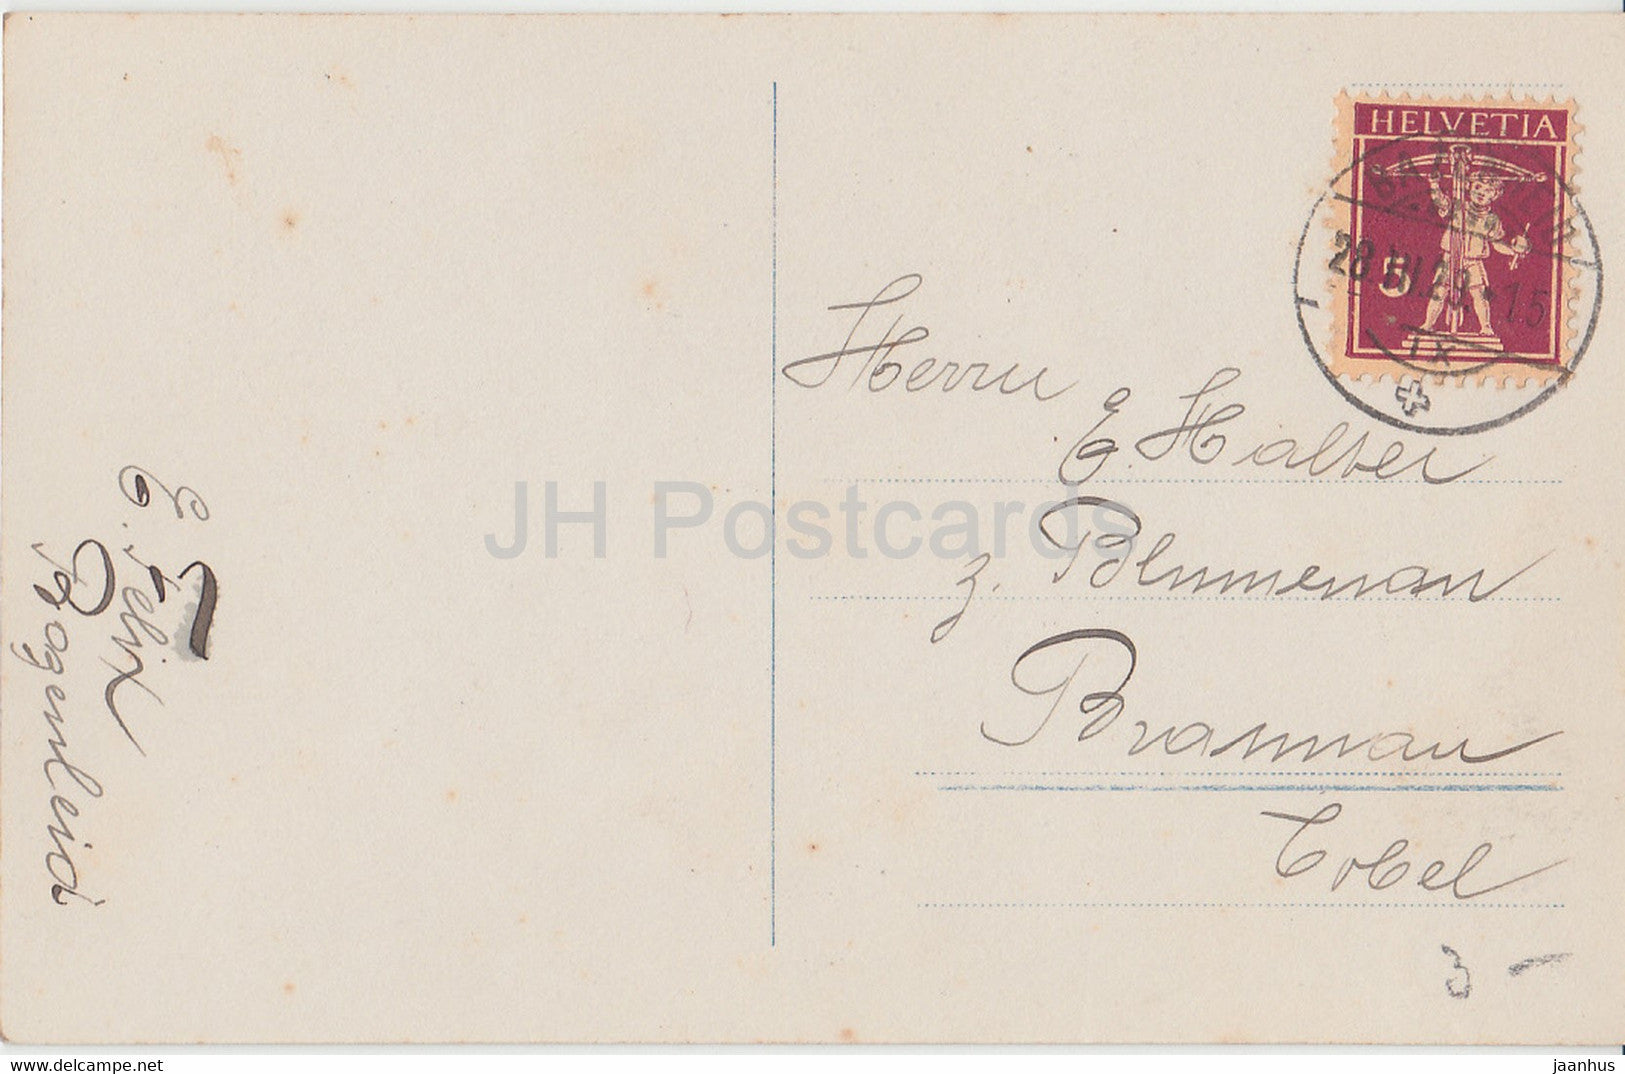 HELVETIA
5
28.VII.29.15
IX
Herrn
E. Halter
z. Blumenau
Braunau
Tobel
E. Felix
Bogenleid
3 -
JH Postcards
delcampe.net
jaanhus